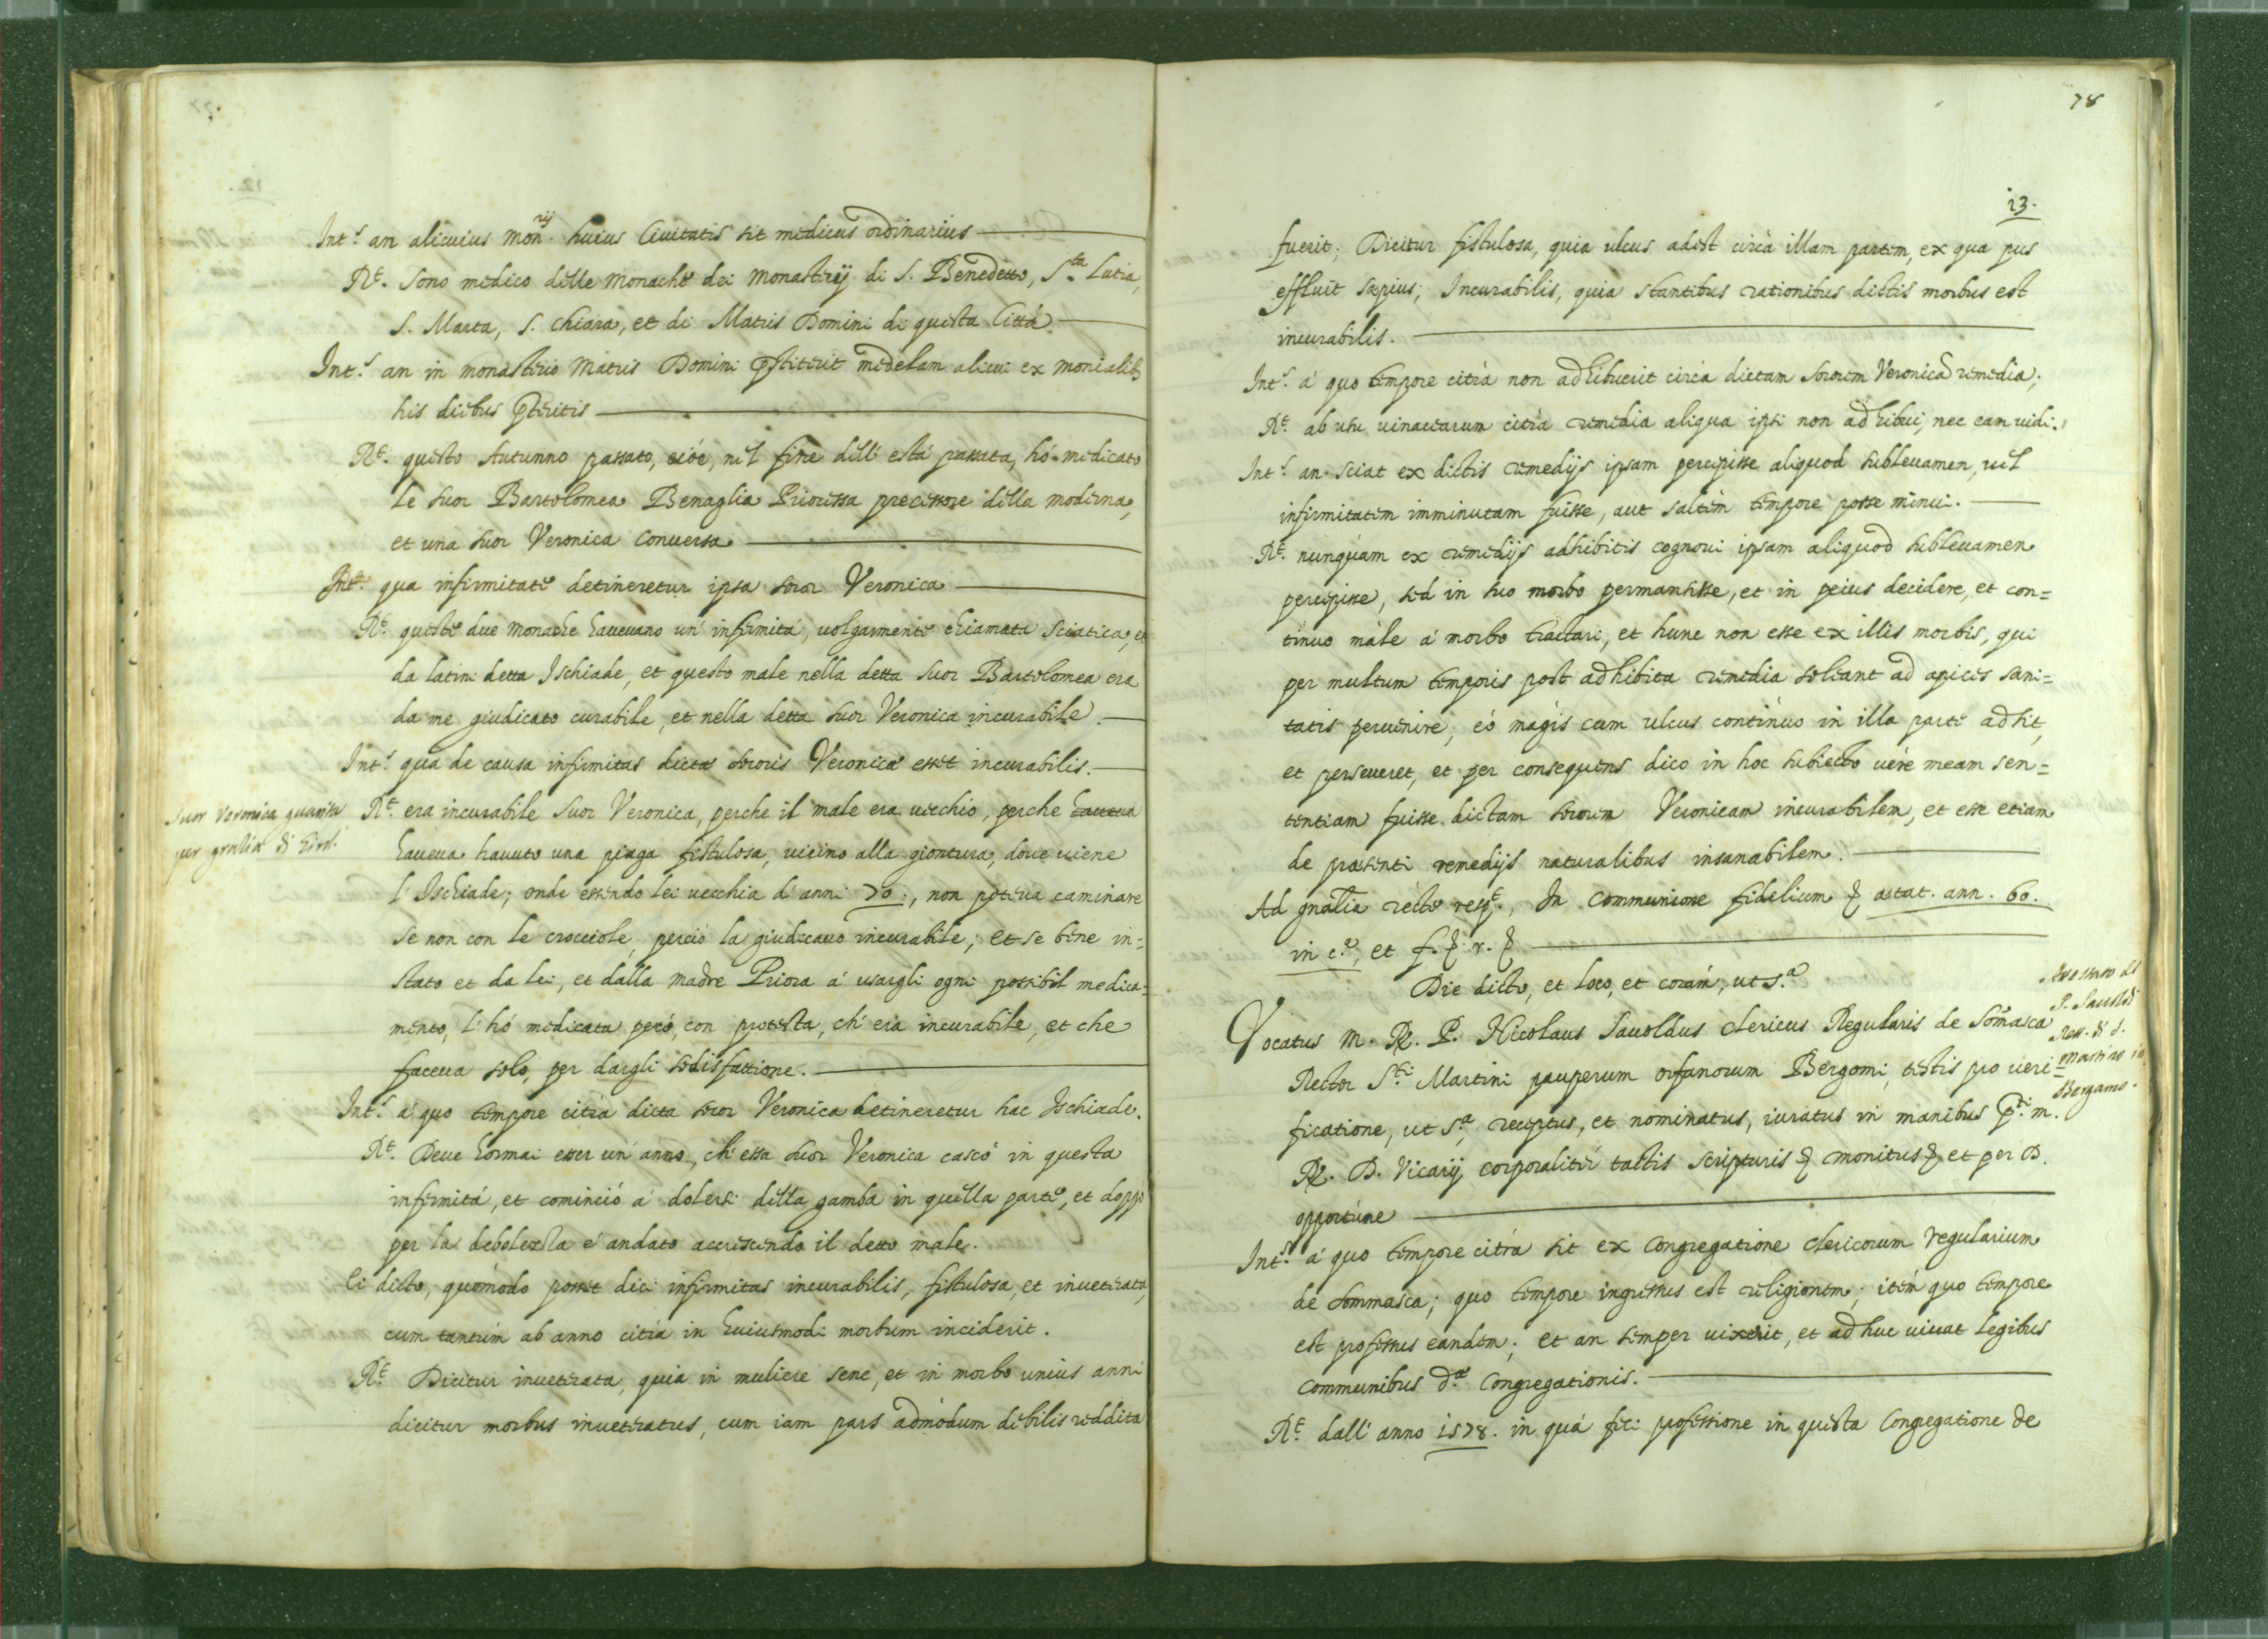 Int.s an alicuius Mon.rij huius Ciuitatis sit medicus ordinarius
R.t Sono medico delle Monache dei Monasterij di S. Benedetto, S.ta Lutia,
S. Marta, S. Chiara, et di Matris Domini di questa Città
Int.s an in monasterio Matris Domini p̄stiterit medelam alicui ex monialib3
his diebus p̄teritis
R.t questo Autunno passato, cióe, nel fine dell' està passata, hò medicato
le Suor Bartolomea Benaglia Prioressa precessore della moderna,
et una Suor Veronica Conuersa
Int.s qua infirmitate detineretur ipsa soror Veronica
R.t queste due Monache haueuano un' infirmità, uolgarmente chiamata Sciatica, et
da latini detta Ischiade, et questo male nella detta Suor Bartolomea era
da me giudicato curabile, et nella detta Suor Veronica incurabile.
Int.s qua de causa infirmitas dictæ sororis Veronicæ esset incurabilis.
Suor Veronica guarita
per gratia di Giro.
R.t era incurabile Suor Veronica, perche il male era uecchio, perche haueua
haueua hauuto una piaga fistulosa, uicino alla giontura, doue uiene
l' Ischiade; onde essendo lei uecchia d' anni 70:, non poteua caminare
se non con le crocciole, perciò la giudicauo incurabile; et se bene in=
stato et da lei, et dalla madre Priora à usargli ogni possibil medica=
mento, l' hò medicata però, con protesta, ch' era incurabile, et che
faceua solo, per dargli sodisfattione.
Int.s à quo tempore citrà dicta soror Veronica detineretur hac Ischiade.
R.t Deue hormai esser un' anno, ch' essa Suor Veronica cascò in questa
infirmità, et cominciò à dolersi della gamba in quella parte, et doppò
per la debolezza è andato accrescendo il detto male.
Ei dicto, quomodo posset dici infirmitas incurabilis, fistulosa, et inueterata,
cum tantùm ab anno citrà in huiusmodi morbum inciderit.
R.t Dicitur inueterata, quia in muliere sene, et in morbo unius anni
dicitur morbus inueteratus, cum iam pars admòdum debilis reddita
78
13.
fuerit; Dicitur fistulosa, quia ulcus adest circà illam partem, ex qua pus
effluit sæpius; Incurabilis, quia stantibus rationibus dictis morbus est
incurabilis.
Int.s à quo tempore citrà non adhibuerit circà dictam Sororem Veronicā remedia;
R.t ab usu uinacearum citrà remedia aliqua ipsi non adhibui, nec eam uidi.
Int.s an sciat ex dictis remedijs ipsam percepisse aliquod subleuamen, uel
infirmitatem imminutam fuisse, aut saltèm tempore posse minui.
R.t nunquàm ex remedijs adhibitis cognoui ipsam aliquod subleuamen
percepisse, sed in suo morbo permansisse, et in peius decidere, et con=
tinuo màle à morbo tractari, et hunc non esse ex illis morbis, qui
per multum temporis post adhibita remedia soleant ad apices sani=
tatis peruenire, eò magis cum ulcus continuo in illa parte adsit,
et perseueret, et per consequens dico in hoc subiecto uère meam sen=
tentiam fuisse dictam sororem Veronicam incurabilem, et esse etiam
de præsenti remedijs naturalibus insanabilem.
Ad gn̄alia rectè resp.t, In Communione fidelium & ætat. ann. 60.
in c.a, et f. & r. &
Die dicto, et loco, et coràm, ut s.a
Vocatus M. R. P. Nicolaus Sauoldus Clericus Regularis de Somasca
Rector S.ti Martini pauperum orfanorum Bergomi, testis pro ueri=
P. Sauoldi
Rett. di S.
Martino in
Bergamo.
ficatione, ut s.a, receptus, et nominatus, iuratus in manibus p.ti m.
R. D. Vicarij, corporalitèr tactis scripturis & monitus & et per D.
opportune
Int.s à quo tempore citrà sit ex Congregatione Clericorum regularium
de Sommasca; quo tempore ingressus est religionem; itèm quo tempore
est professus eandem; et an semper uixerit, et adhuc uiuat legibus
communibus d.æ Congregationis.
R.t dall' anno 1578. in quà feci professione in questa Congregatione de